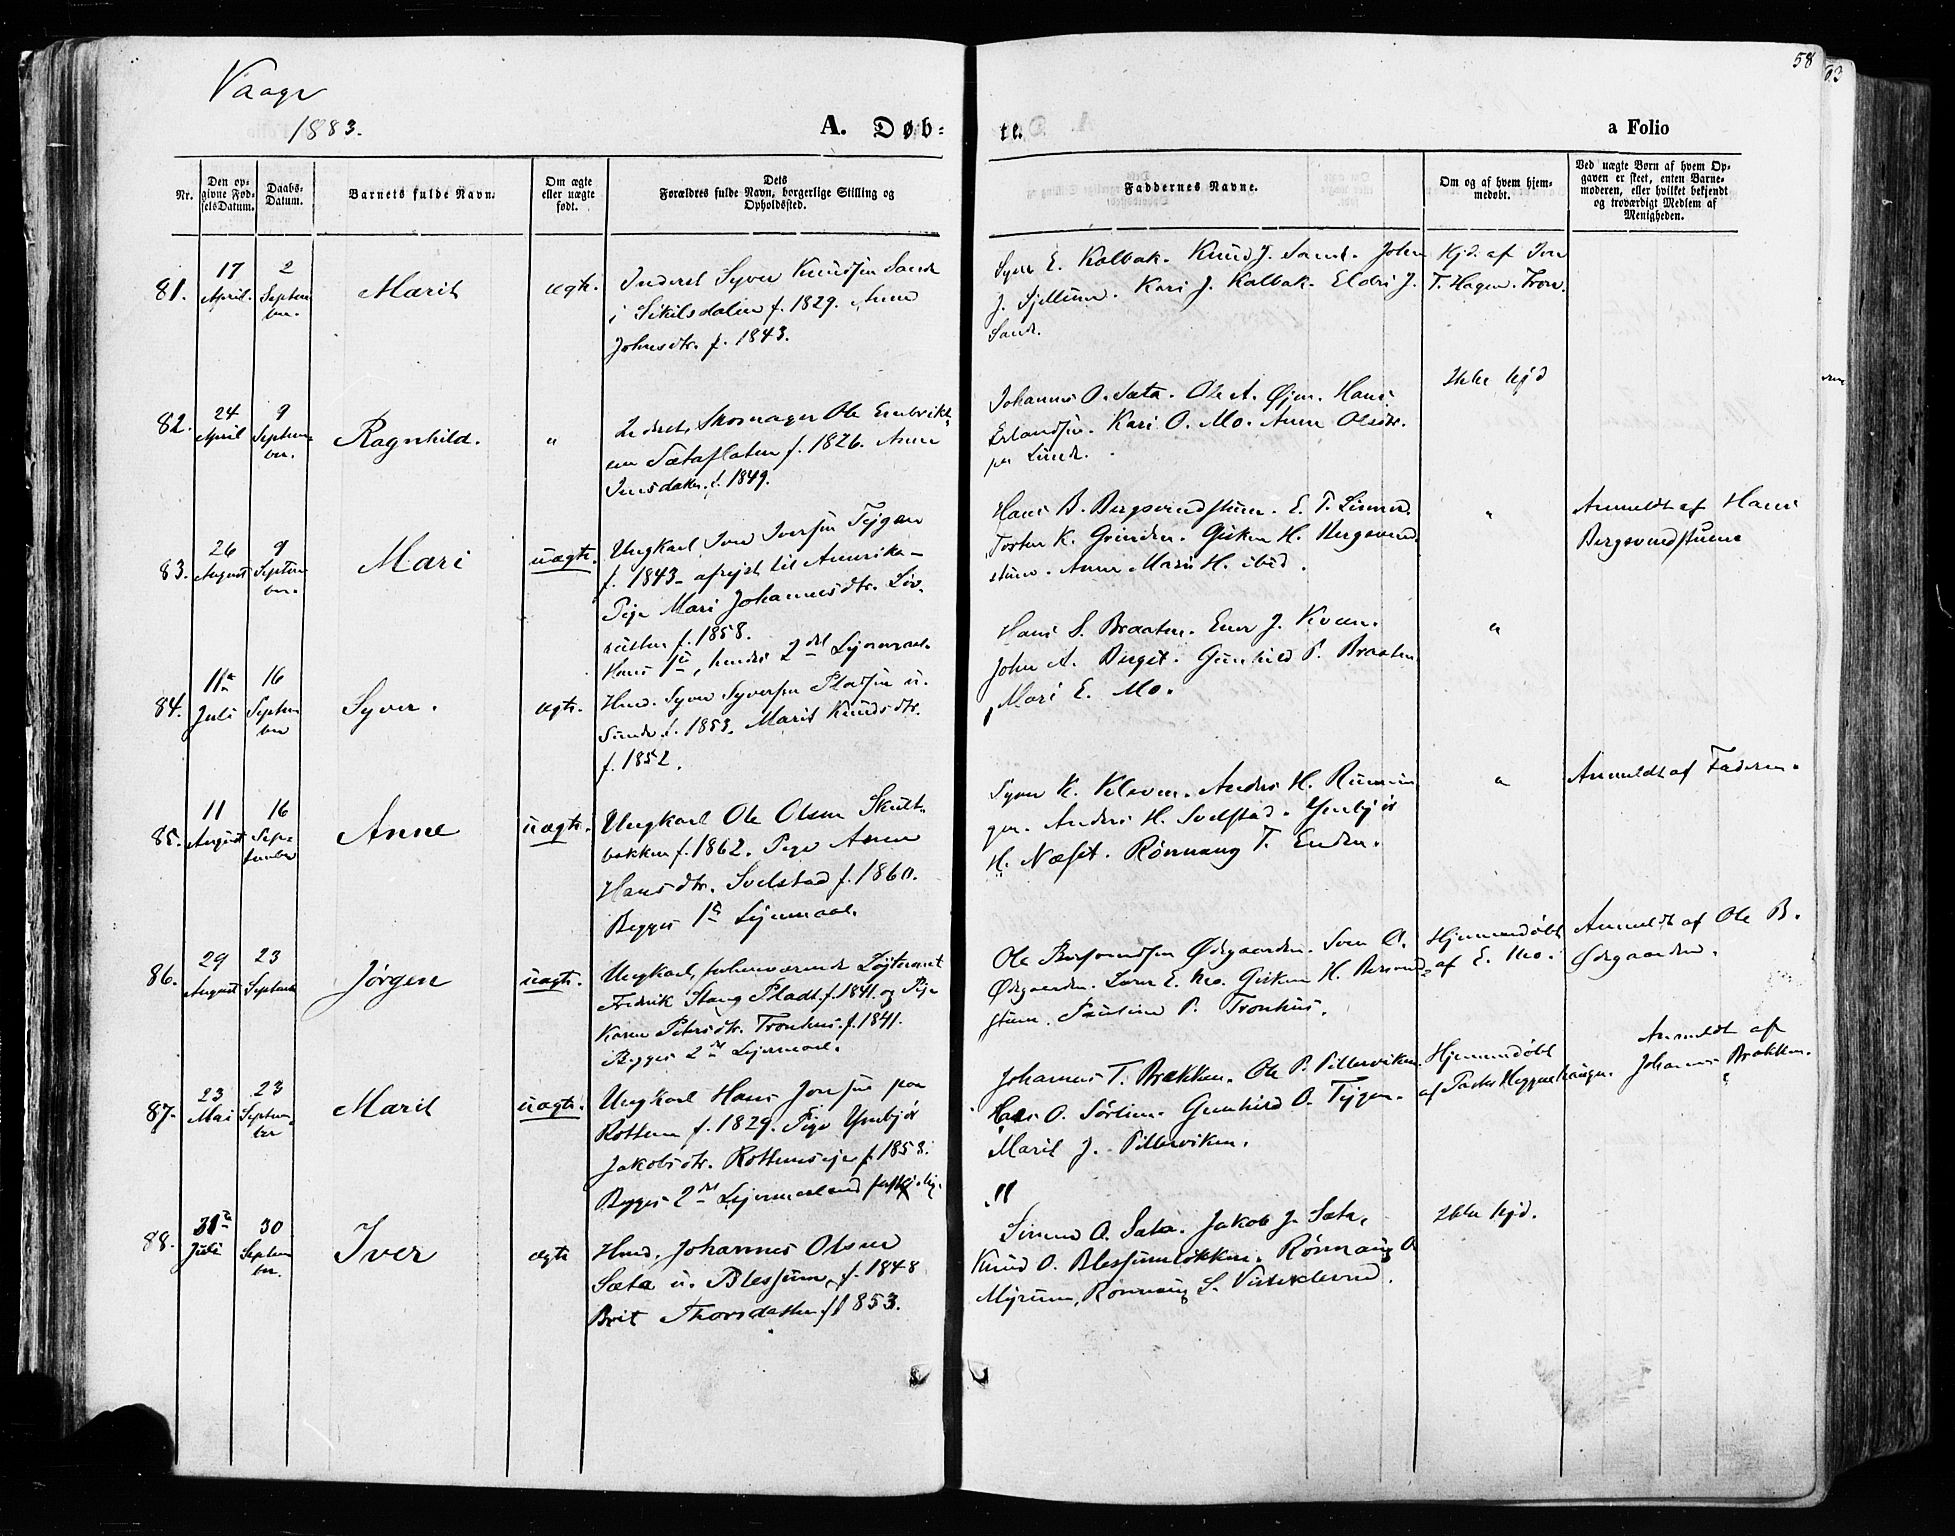 Vaage
1883.
A. Døb-
te.
a Folio
58
93
Nr.
Den op-
givne Fød-
selsDatum.
Daabs-
Datum.
Barnets fulde Navn.
Om ægte
eller uægte
født.
Dets
Forældres fulde Navn, borgerlige Stilling og
Opholdssted.
Faddernes Navne.
Om og af hvem hjem-
medøbt.
Ved uægte Børn af hvem Op-
gaven er skeet, enten Barne-
moderen, eller hvilket bekjendt
og troværdigt Medlem af
Menigheden.
81.
17
April.
2
Septem
ber.
Marit
ægte.
Inderst Syver Knudsen Sande
i Sikilsdalen f. 1829. Anne
Johnsdtr. f. 1843.
Syver E. Kalbak. Knud J. Sande. John
J. Sjellum. Kari J. Kalbak. Eldri J.
Sande.
Hjd. af Iver
T. Hagen.
82.
24
April
9
Septem-
ber.
Ragnhild.
"
Inderst, Skomager Ole Embrikt-
sen Sætaflaten f. 1826. Anne
Iversdatter. f. 1849.
Johannes O. Sæta. Ole A. Øjen. Hans
Erlandsen. Kari O. Mo. Anne Olsdtr.
paa Lunde.
Ikke hjd
83.
26
August
9
Septem
ber.
Mari
uægte.
Ungkarl Iver Iversen Tejgen
f. 1843 - afrejst til Amerika -
Pige Mari Johannesdtr. Løv-
f. 1858.
Hans 1ste, hendes 2det Lejermaal.
Hans B. Bergsvendstuen. E. T.
Torsten K. Grinden. Gisken H. Bergsvend
stuen. Anne Marie H. ibid.
"
Anmeldt af Hans
Bergsvendstuen
84.
11te
Juli
16
Septem
ber
Syver.
ægte.
Hmd. Syver Syversen Pladsen u.
Sande f. 1853. Marit Knudsdtr.
f. 1852.
Hans S. Braaten. Ener J. Kvan.
John A. Birgit. Gunhild P. Braaten
Mari E. Mo.
"
85.
11
August
16
Sep-
tember
Anne
uægte.
Ungkarl Ole Olsen Skult-
bakken f. 1862. Pige Anne
Hansdtr. Svelstad f. 1860.
Begges 1ste Lejermaal.
Syver K. Kleven. Anders H. Runnin
gen. Anders H. Svelstad. Ymbjør
H. Næset. Rønnaug T. Enden.
"
Anmeldt af Faderen.
86.
29
August
23
Septembr
Jørgen
uægte.
Ungkarl, forhenværende Løjtnant
Fredrik Stang Pladt f. 1841. og Pige
Karen Petersdtr. Tronhus. f. 1841.
Begges 2det Lejermaal.
Ole Bersvendsen Ødegaarden. Sven O.
Ødegaarden. Lars E. Mo. Gisken H. Bersvend
stuen. Pauline P. Tronhus.
Hjemmedøbt
af E. Mo.
Anmeldt af Ole B.
Ødegaarden.
87.
23
Mai
23
Septem
ber
Marit
uægte.
Ungkarl Hans Jonsen paa
Rottem f. 1829. Pige Ymbjør
Jakobsdtr. Rottemseje f. 1858.
Begges 2det Lejermaal
Johannes T. Brækken. Ole P. Pillarviken
Hans O. Sørlien. Gunhild O. Tejgen.
Marit J. Pillarviken.
Hjemmedøbt
af Peder Heggenhaugen.
Anmeldt af
Johannes Brækken.
"
88.
31te
Juli
30
Septem
ber.
Iver
ægte
Hmd. Johannes Olsen
Sæta u. Blessum, f. 1848
Brit Thorsdatter f. 1853.
Simen O. Sæta. Jakob J. Sæta,
Knud O. Blessumløkken. Rønnaug O
Myrum, Rønnaug S. Visteklevud.
Ikke hjd.